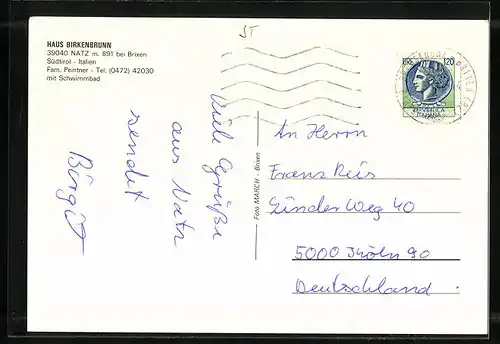 ST
HAUS BIRKENBRUNN
39040 NATZ m. 891 bei Brixen
Südtirol - Italien
Fam. Peintner - Tel. (0472) 42030
mit Schwimmbad
120
REPVBBLICA
ITALIANA
Viele Grüße
aus Natz
sendet
Birgit
Foto MARCH - Brixen
An Herrn
Franz Reis
Linder Weg 40
5000 Köln 90
Deutschland